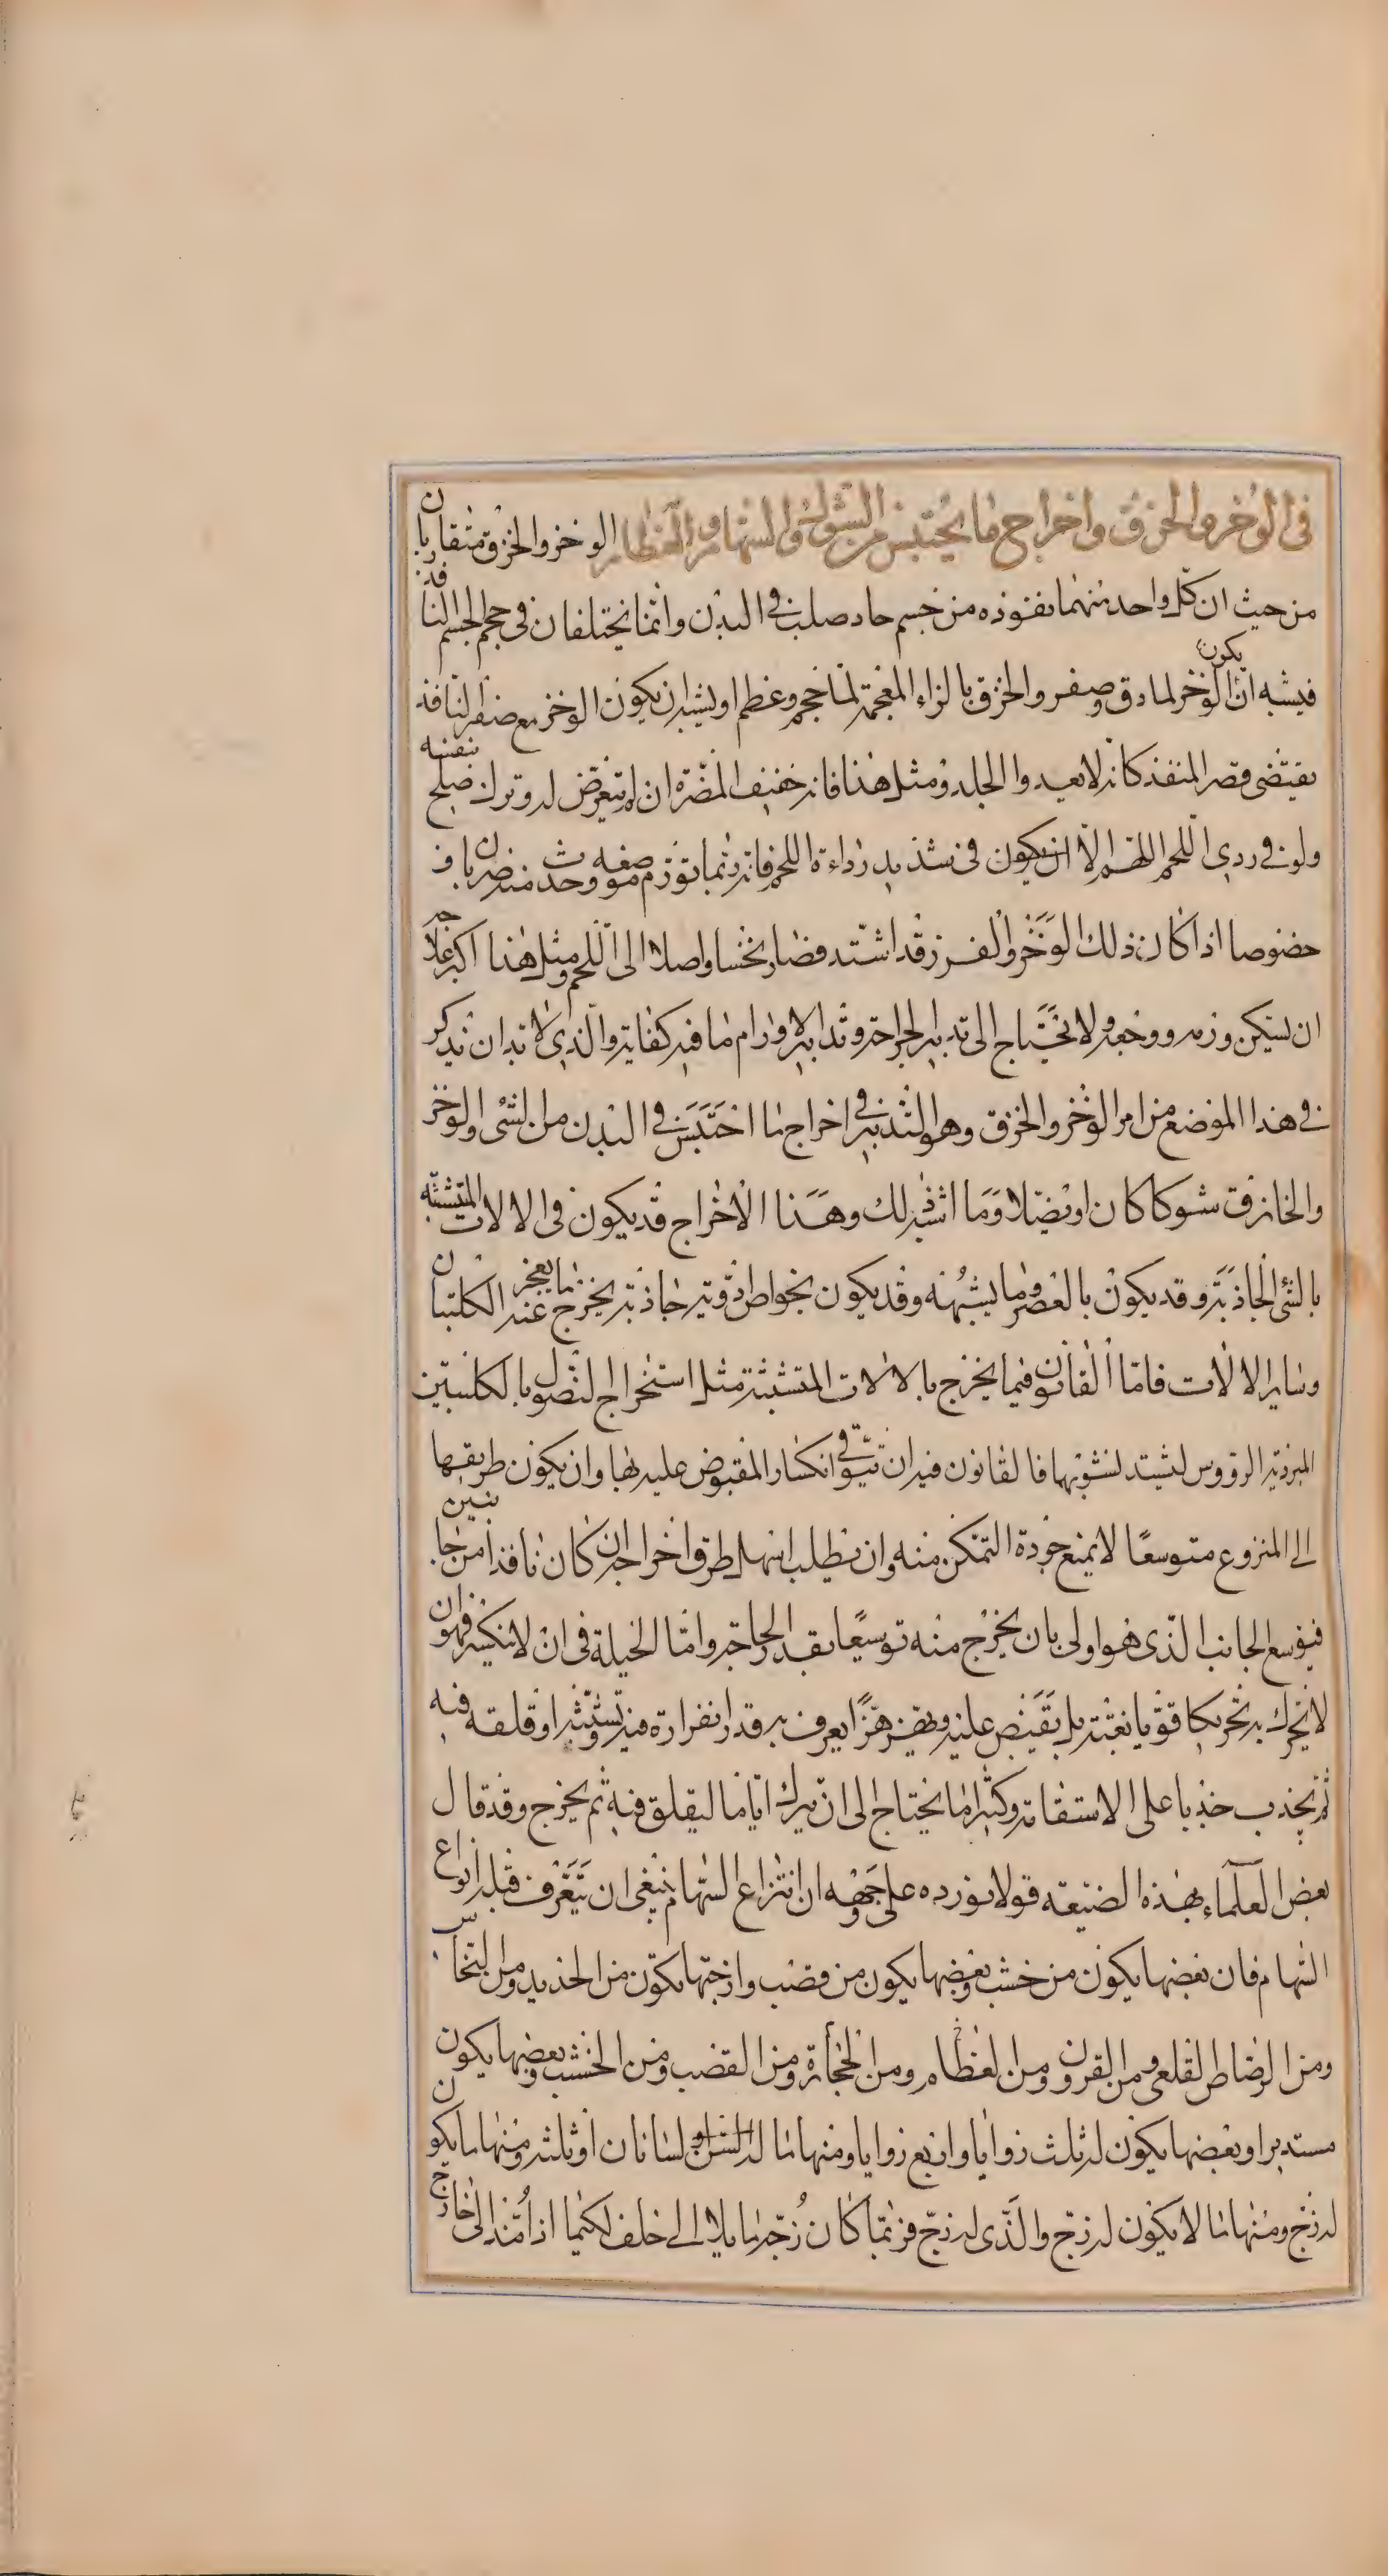 في الوخز والخزق واخراج ما يحتبس من الشوك والسهام والعظام الوخز والخزق متقاربان
من حيث ان كل واحد منهما نفوذه من جسم حاد صلب في البدن وانما يختلفان في حجم الجسم النافذ
فيشبه ان يكون الوخز لما دق وصغر والخزق بالزاء المعجمة لما حجم وعظم او يشبه ان يكون الوخز مع صغر النافذ
يقتضي قصر المنفذ كانه لا يعدوا الجلد ومثل هذا فانه خفيف المضرة ان لم يتعرض له وترك صلح بنفسه
ولو في ردي اللحم اللهم الا ان يكون في شديد رداءة اللحم فانه ربما تورم موضعه وحدث منه ضربان
خصوصا اذا كان ذلك الوخز والغرز قد اشتد فصار نخسا واصلا الى اللحم ومثل هذا اكبر علاجه
ان يسكن ورمه ووجعه ولا يحتاج الى تدبير الجراحة وتدابير الاورام ما فيه كفاية والذي لا بد ان نذكر
في هذا الموضع من امر الوخز والخزق وهو التدبير في اخراج ما احتبس في البدن من الشئ الواخز
والخازق شوكا كان او نصلا وما اشبه ذلك وهذا الاخراج قد يكون في الالات المتشبثه
بالشئ الجاذبة وقد يكون بالعصر وما يشبهه وقد يكون بخواص ادوية جاذبة يخرج ما يعجز عنه الكلبتان
وساير الالات فاما القانون فيما يخرج بالالات المتشبثة مثل استخراج النصول بالكلبتين
المبردية الرؤوس ليشتد نشوبها فالقانون فيه ان يتوقى انكسار المقبوض عليه بها وان يكون طريقها
الى المنزوع متوسعا لا يمنع جودة التمكن منه وان يطلب اسهل طرق اخراجه ان كان نافذا من جانبين
فيوسع الجانب الذي هو اولى بان يخرج منه توسيعا بقدر الحاجة واما الحيلة في ان لا ينكسر فهو ان
لا يحرك به تحريكا قويا بغتة بل يقبض عليه ويهز هزا يعرف به قدر انغرازه فيه وتشبثه او قلقه فيه
ثم يجذب جذبا على الاستقامة وكثيرا ما يحتاج الى ان يترك اياما ليقلق فيه ثم يخرج وقد قال
بعض العلماء بهذه الصنيعه قولا نورده على وجهه ان انتزاع السهام ينبغي ان يتعرف قبله انواع
السهام فان بعضها يكون من خشب وبعضها يكون من قصب وازجتها تكون من الحديد ومن النحاس
ومن الرصاص القلعي ومن القرون ومن العظام ومن الحجارة ومن القصب ومن الخشب وبعضها يكون
مستديرا وبعضها يكون له ثلث زوايا واربع زوايا ومنها ما له لسانان او ثلثه ومنها ما يكون
له زج ومنها ما لا يكون له زج والذي له زج فربما كان زجه مايلا الى خلف لكيما اذا مد الى خارج